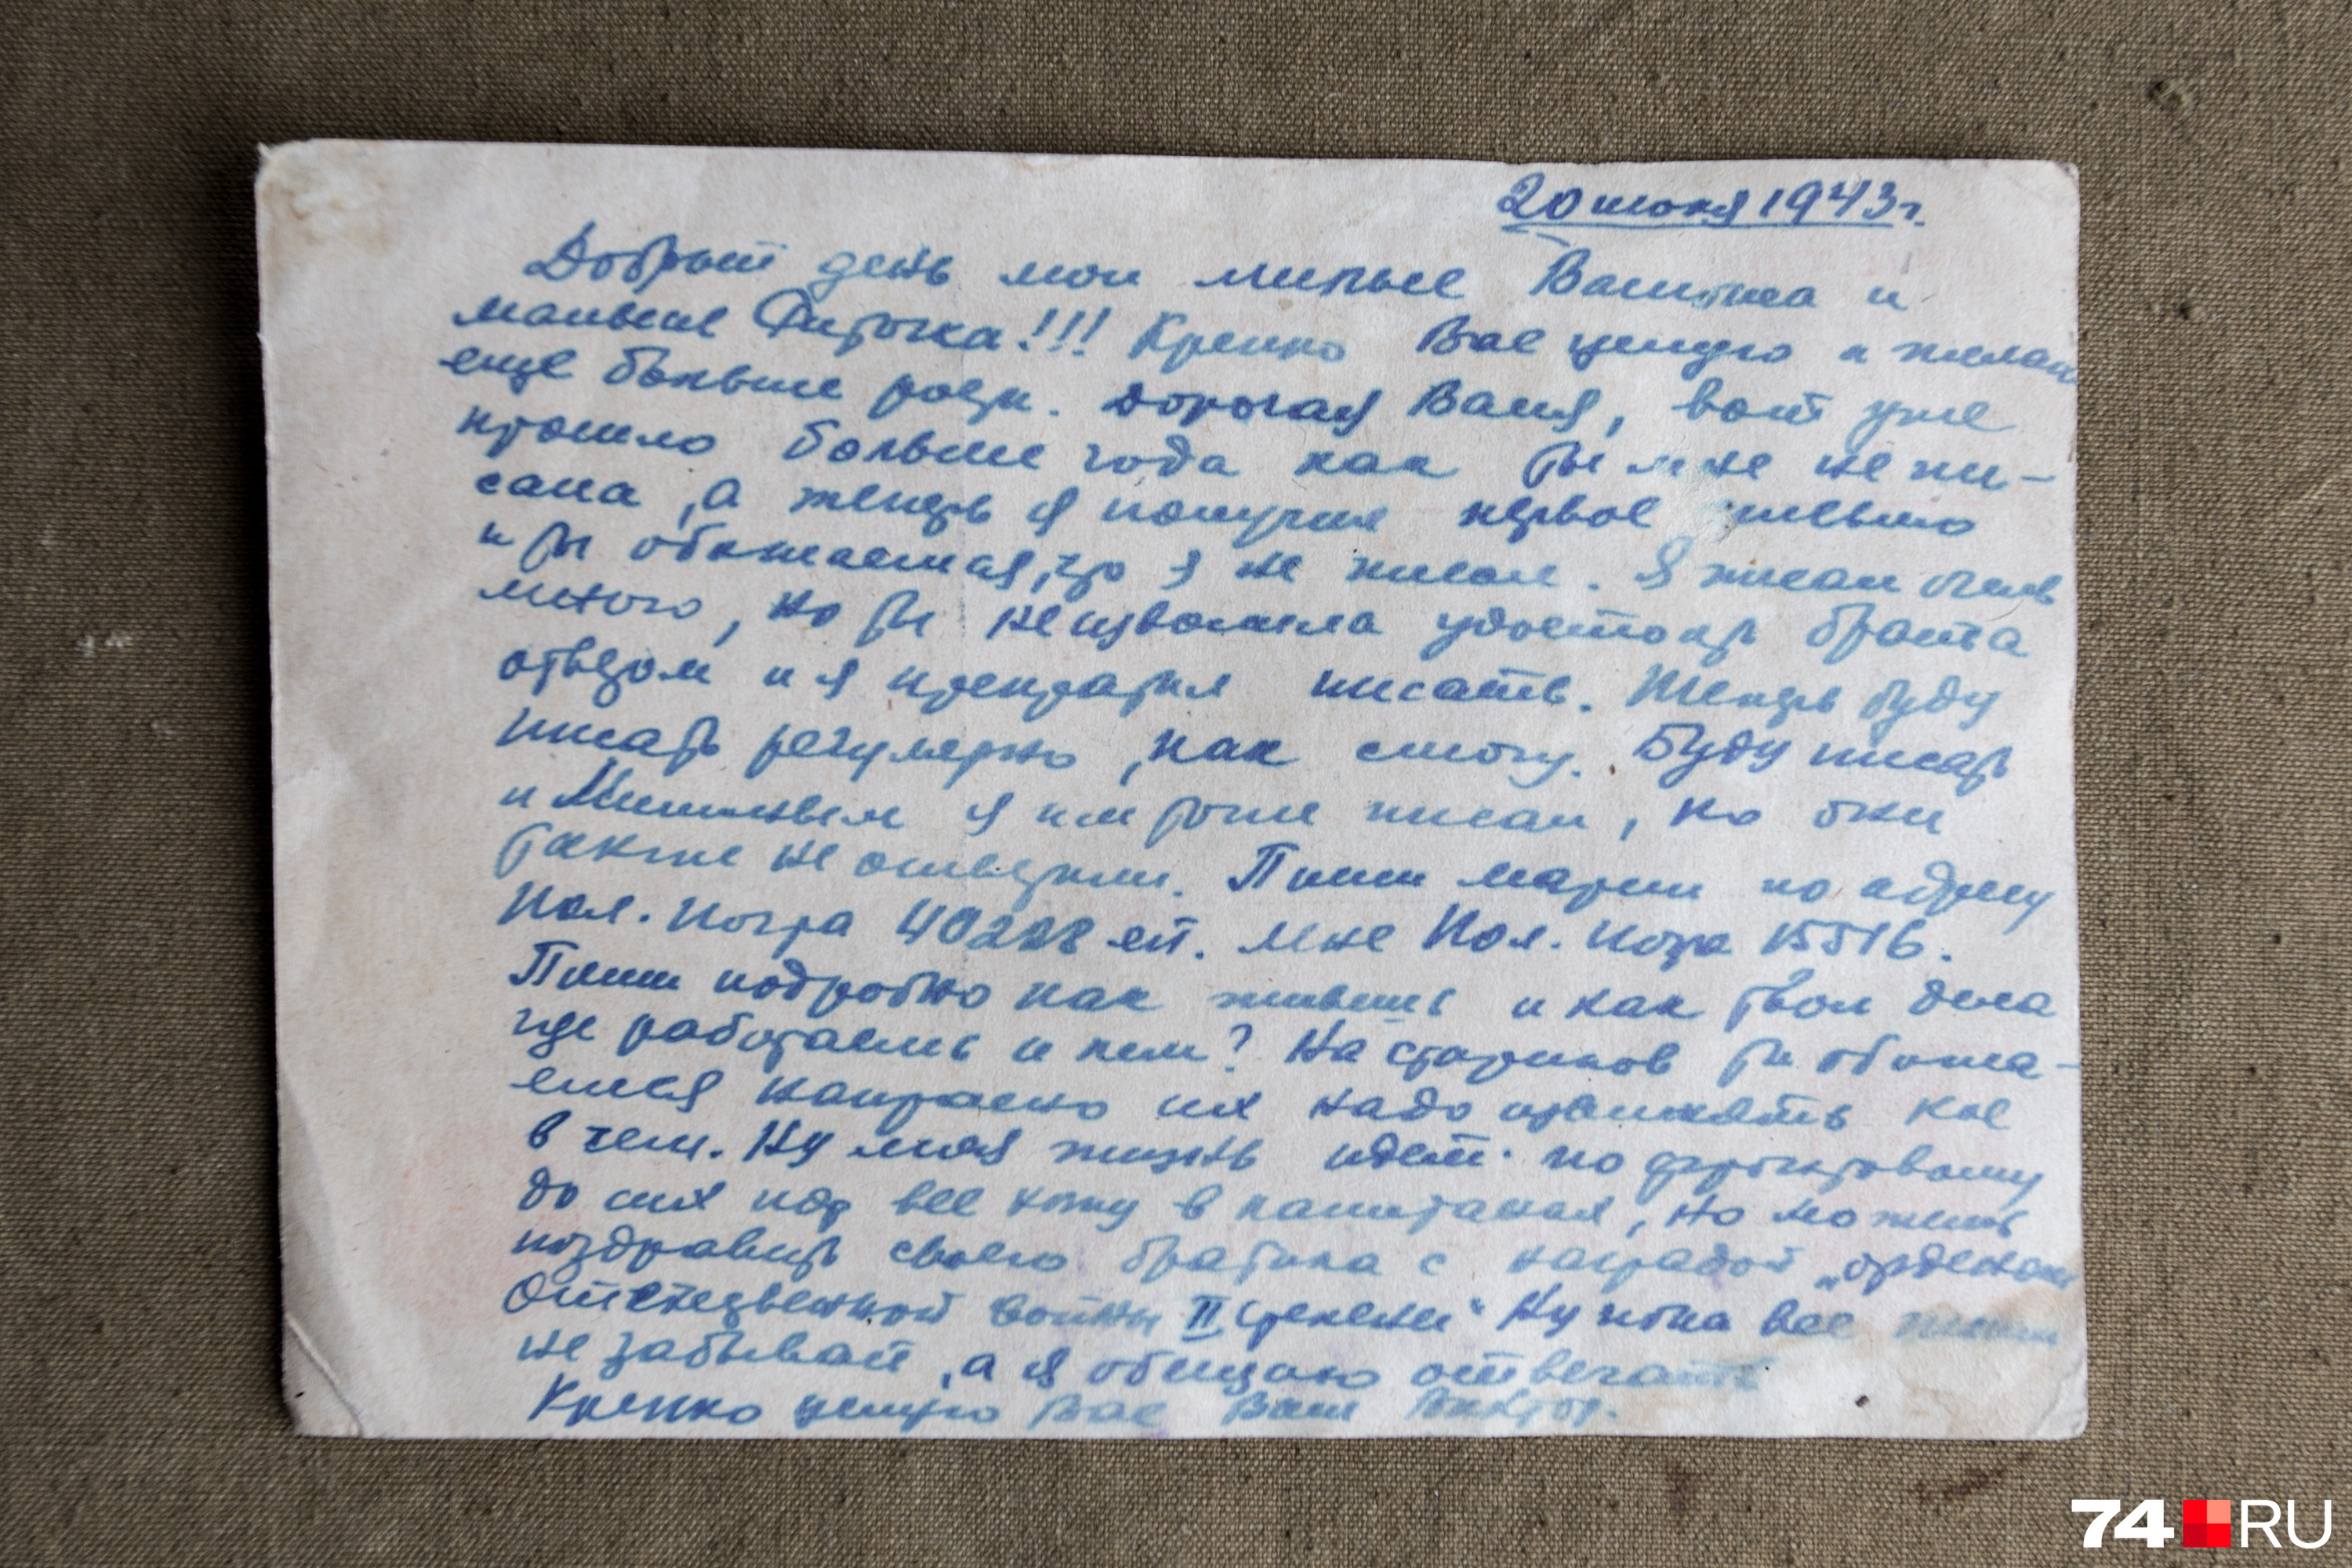 20 июня 1943г.
Добрый день мои милые Валюша и
малыш Фирочка!!! Крепко Вас целую и желаю
еще больше роди. Дорогая Валя, вот уже
прошло больше года как ты мне не пи-
сала, а теперь я получил первое письмо
и ты обижаешься, что я не писал. Я писал очень
много, но ты не изволила удостоить брата
ответом и я прекратил писать. Теперь буду
писать регулярно, как смогу. Буду писать
и я им тоже писал, но они
также не ответили. Пиши Марии по адресу
Пол. почта 40228 еп. Мне Пол. почта 15516.
Пиши подробно как живешь и как твои дела
где работаешь и кем? На стариков ты обижа-
ешься напрасно их надо извинять кое
в чем. Ну моя жизнь идет по фронтовому
до сих пор все хожу в капитанах, но можешь
поздравить своего братика с наградой „орденом
Отечественной войны II степени“ Ну пока все пиши
не забывай, а я обещаю отвечать
Крепко целую Вас Ваш Виктор.
74 RU